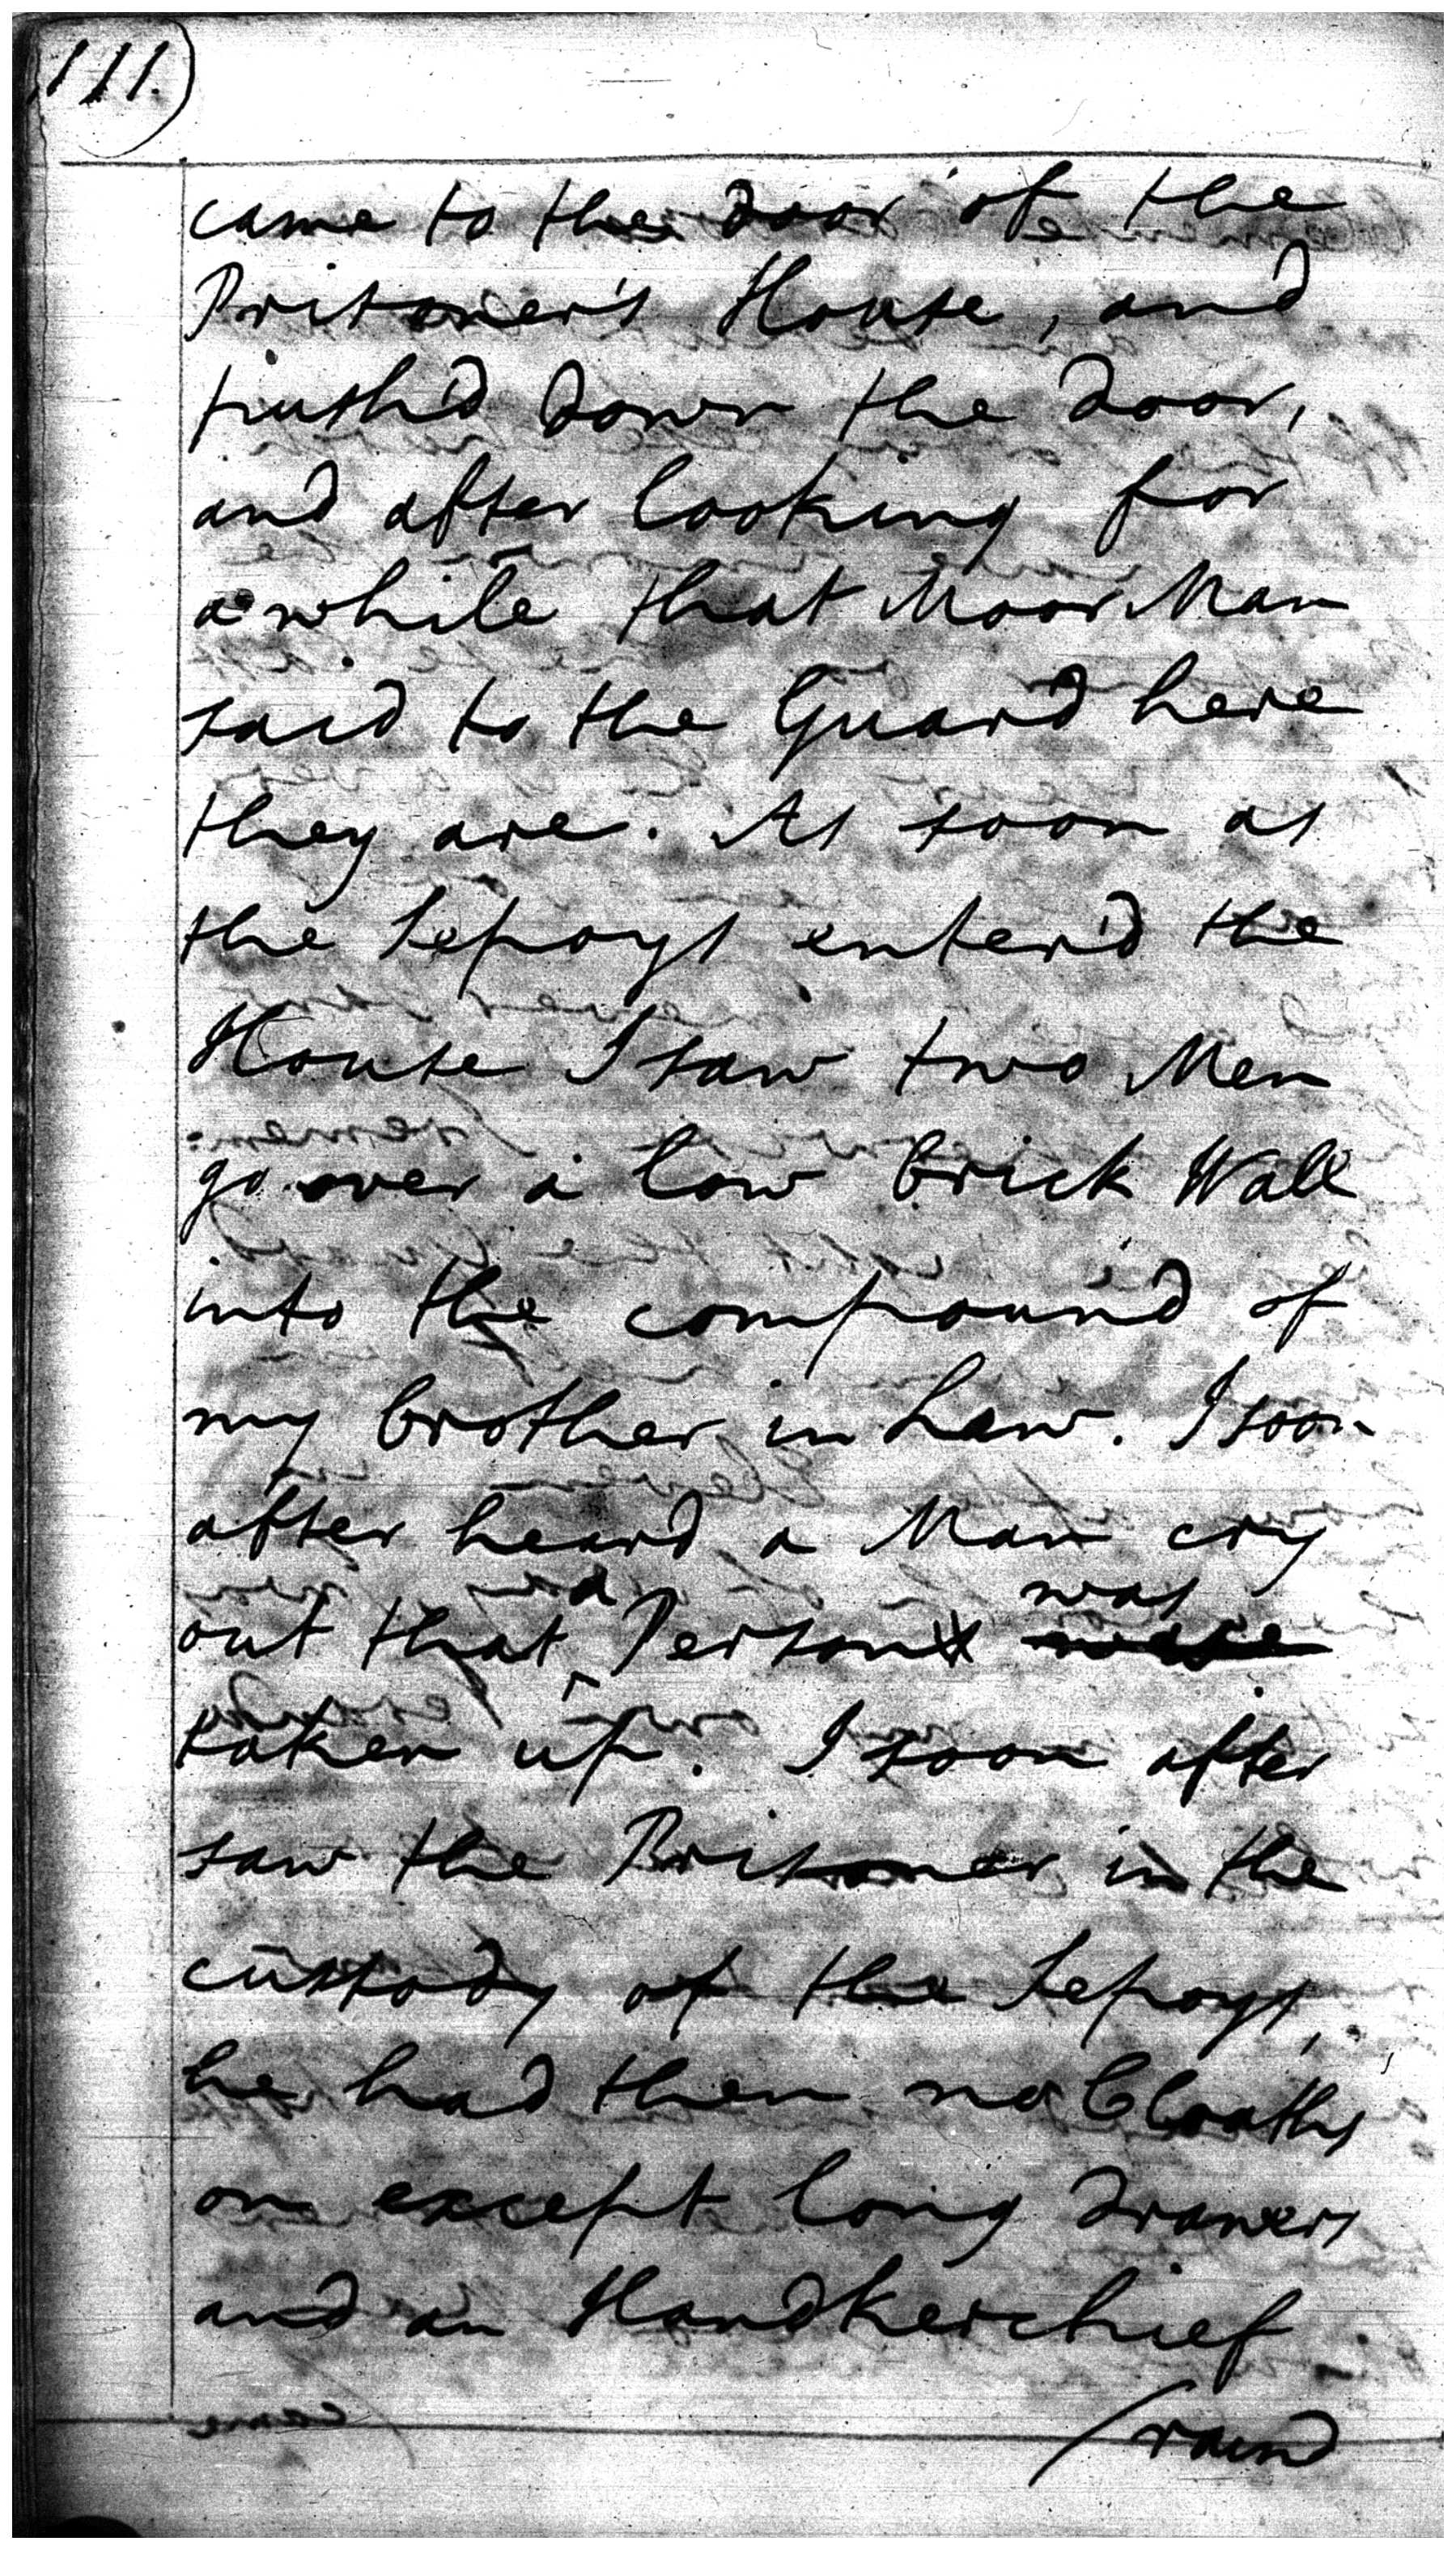 111.)
came to the door of the
Prisoner's House, and
push'd down the door,
and after looking for
a while that Moor Man
said to the Guard here
they are. As soon as
the Sepoys enter'd the
House I saw two Men
go over a low brick Wall
into the compound of
my brother in Law. I soon
after heard a Man cry
out that a Person was
taken up. I soon after
saw the Prisoner in the
custody of the Sepoys,
he had then no Cloaths
on except long drawers
and an Handkerchief
/round